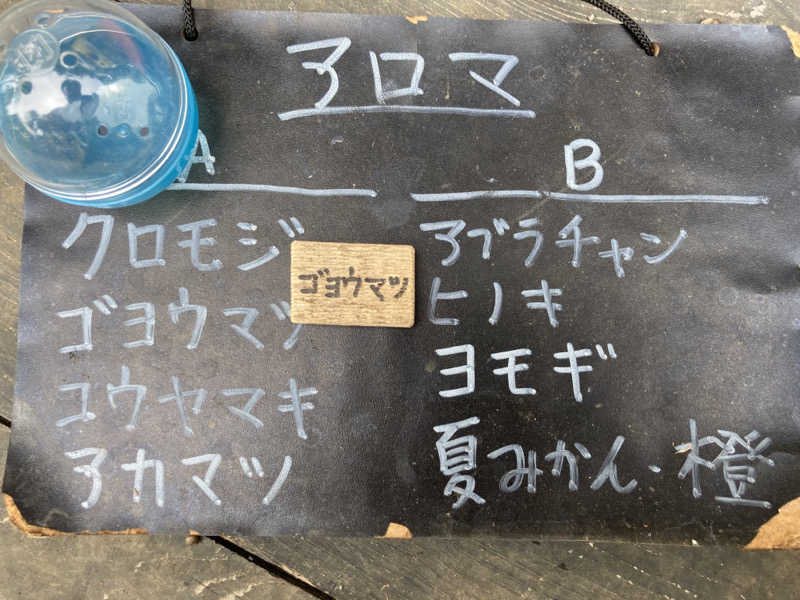 アロマ
A
クロモジ
ゴヨウマツ
コウヤマキ
アカマツ
ゴヨウマツ
B
アブラチャン
ヒノキ
ヨモギ
夏みかん・橙